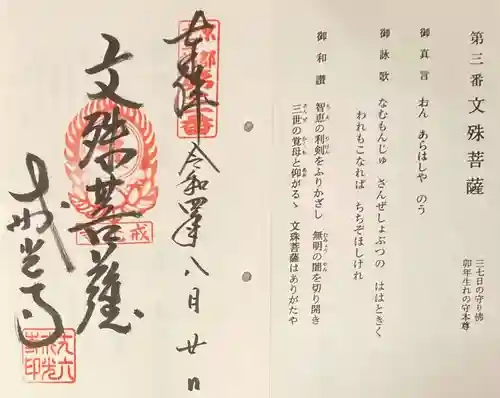 第三番 文殊菩薩
三七日の守り佛
卯年生れの守本尊
御真言 おん あらはしや のう
御詠歌 なむもんじゅ さんぜしょぶつの ははときく
われもこなれば ちちぞほしけれ
御和讃 智恵の利剣をふりかざし 無明の闇を切り開き
三世の覚母と仰がるゝ 文殊菩薩はありがたや
奉拝 令和四年八月廿日
文殊菩薩
戒光寺